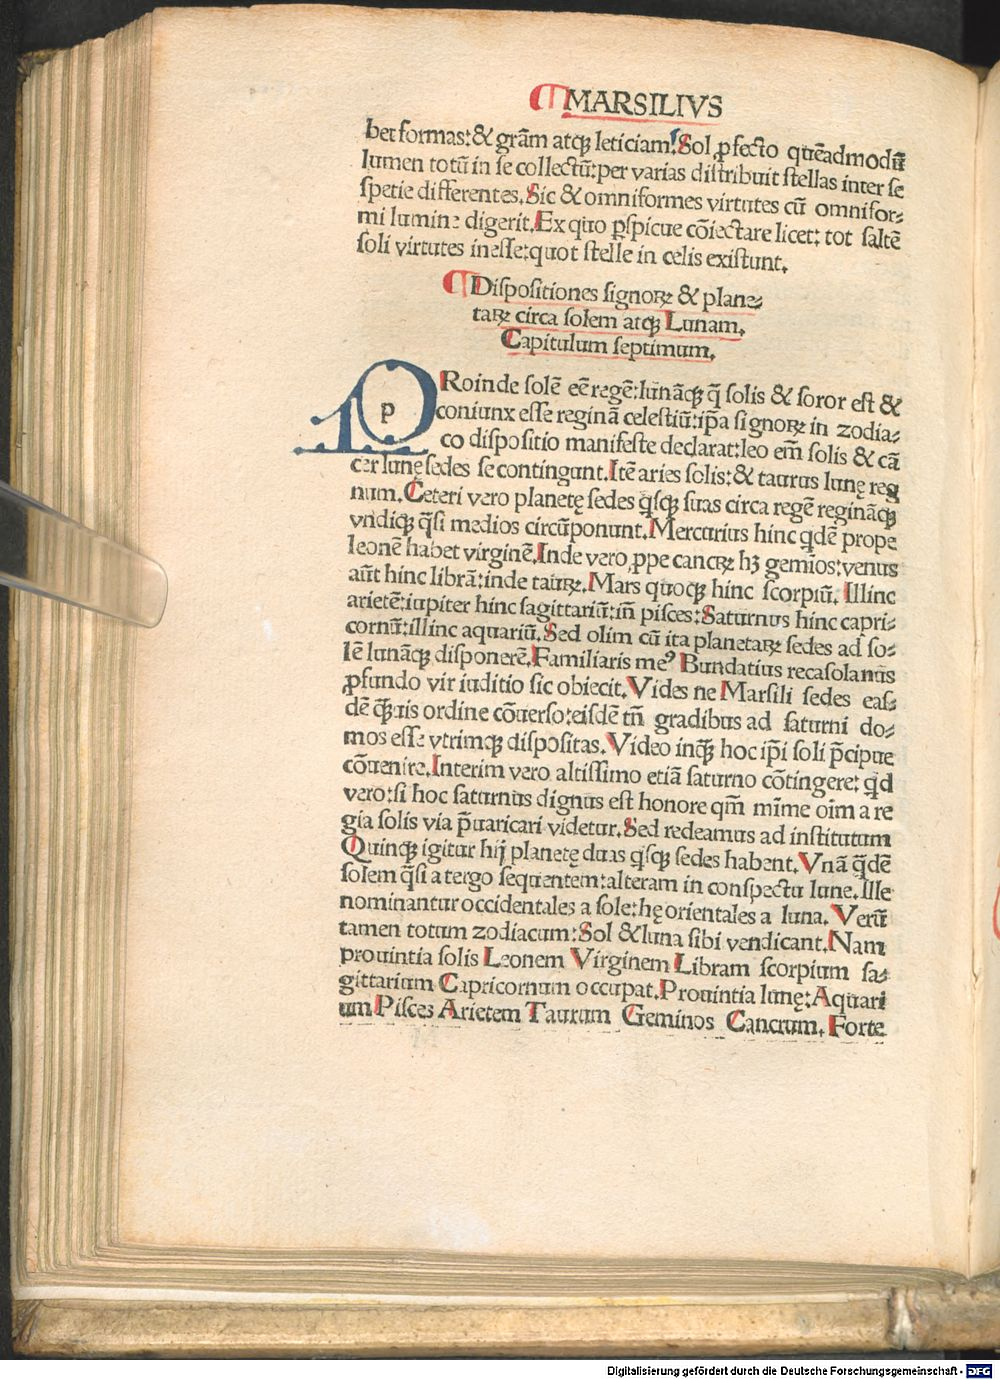 MARSILIVS
bet formas:& grãm atqꝫ leticiam. Sol ꝓfecto quẽadmodũ
lumen totũ in se collectũ:per varias distribuit stellas inter se
spetie differentes. Sic & omniformes virtutes cũ omnifor-
mi lumine digerit. Ex quo ꝑspicue cõiectare licet: tot saltẽ
soli virtutes inesse:quot stelle in celis existunt.
Dispositiones signoꝝ & plane-
taꝝ circa solem atqꝫ Lunam.
Capitulum septimum.
pRoinde solẽ eẽ regẽ:lunãqꝫ q̃ solis & soror est &
coniunx esse reginã celestiũ:ip̃a signoꝝ in zodia-
co dispositio manifeste declarat:leo em̃ solis & cã
cer lunę sedes se contingunt. Itẽ aries solis:& taurus lunę reg
num. Ceteri vero planetę sedes q̃sqꝫ suas circa regẽ reginãqꝫ
vndiqꝫ q̃si medios circũponunt. Mercurius hinc qdẽ prope
leonẽ habet virginẽ. Inde vero ꝓpe cancꝝ hꝫ gemĩos:venus
aũt hinc librã:inde tauꝝ. Mars quoqꝫ hinc scorpiũ. Illinc
arietẽ:iupiter hinc sagittariũ:iñ pisces: Saturnus hinc capri-
cornũ:illinc aquariũ. Sed olim cũ ita planetaꝝ sedes ad so-
lẽ lunãqꝫ disponerẽ. Familiaris meꝰ Bundatius recasolanus
ꝓfundo vir iuditio sic obiecit. Vides ne Marsili sedes eas-
dẽ qꝫuis ordine cõuerso:eisdẽ tñ gradibus ad saturni do-
mos esse vtrimqꝫ dispositas. Video inqꝫ hoc ip̃i soli p̃cipue
cõuenire. Interim vero altissimo etiã saturno cõtingere: qd
vero:si hoc saturnus dignus est honore qm̃ mĩme oĩm a re
gia solis via p̃uaricari videtur. Sed redeamus ad institutum
Quinqꝫ igitur hij planetę duas q̃sqꝫ sedes habent. Vnã q̃dẽ
solem q̃si a tergo sequentem:alteram in conspectu lune. Ille
nominantur occidentales a sole:hę orientales a luna. Verũ
tamen totum zodiacum: Sol & luna sibi vendicant. Nam
prouintia solis Leonem Virginem Libram scorpium sa-
gittarium Capricornum occupat. Prouintia lunę: Aquari
um Pisces Arietem Taurum Geminos Cancrum. Forte
Digitalisierung gefördert durch die Deutsche Forschungsgemeinschaft - DFG